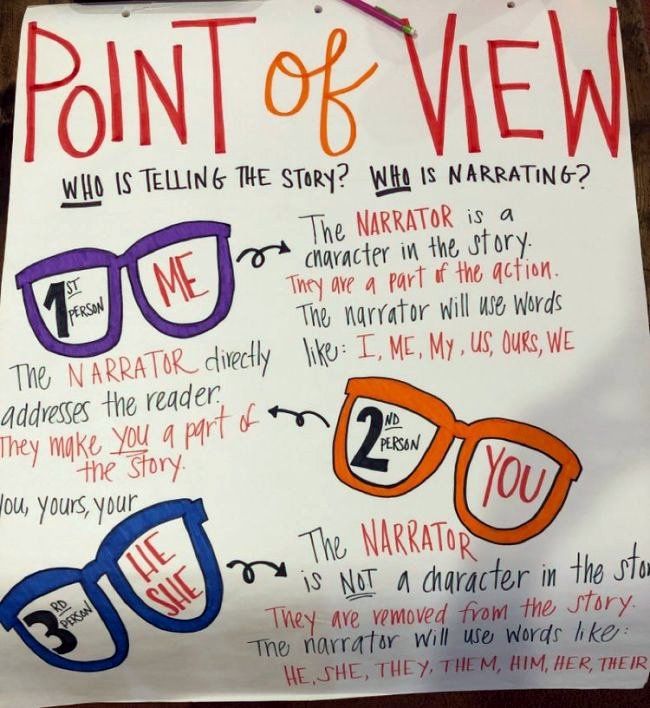 POINT of VIEW
WHO IS TELLING THE STORY? WHO IS NARRATING?
1ST PERSON
ME
The NARRATOR is a
character in the story.
They are a part of the action.
The narrator will use words
like: I, ME, MY, US, OURS, WE
The NARRATOR directly
addresses the reader.
They make you a part of
the story.
You, yours, your
2ND PERSON
YOU
3RD PERSON
HE
SHE
The NARRATOR
is NOT a character in the sto
They are removed from the story.
The narrator will use words like:
HE, SHE, THEY, THEM, HIM, HER, THEIR